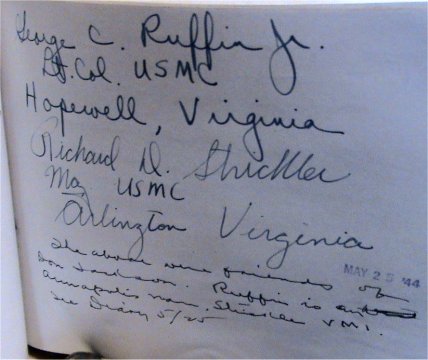 George C. Ruffin Jr.
Lt. Col. USMC
Hopewell, Virginia
Richard D. Strickler
Maj USMC
Arlington Virginia
MAY 25 '44
The above were friends of
Don Jackson. Ruffin is an
Annapolis man. Strickler VMI.
See Diary 5/25